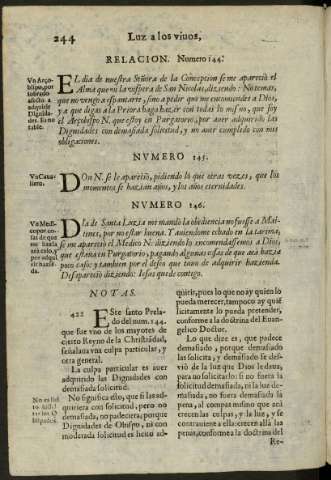 244
Luz a los viuos,
RELACION. Numero 144.
EL dia de nuestra Señora de la Concepcion se me apareciò el
Alma que vi la vispera de San Nicolas, diziendo: No temas,
que no vengo à espantarte, sino a pedir que me encomiendes a Dios,
y a que digas a la Priora haga hazer con todas lo mismo, que soy
el Arçobispo N. que estoy en Purgatorio, por auer adquirido las
Dignidades con demasiada solicitud, y no auer cumplido con mis
obligaciones.
NVMERO 145.
Vn Caua-
llero.
DOn N. se le apareciò, pidiendo lo que otras vezes, que los
momentos se hazian años, y los años eternidades.
NVMERO 146.
DIa de Santa Luzia me mandò la obediencia no fuesse a Mai-
tines, por no estar buena. Y auiendome echado en la tarima,
se me apareciò el Medico N. diziendo lo encomendassemos a Dios,
que estaua en Purgatorio, pagando algunas cosas de que acà hazia
poco caso; y tambien por el deseo que tuuo de adquirir hazienda.
Desapareciò diziendo: Iesus quede contigo.
NOTAS.
422
ESte santo Prela-
do del num. 144.
que fue vno de los mayores de
cierto Reyno de la Christiãdad,
señalaua vna culpa particular, y
otra general.
La culpa particular es auer
adquirido las Dignidades con
demasiada solicitud.
No significa esto, que si las ad-
quiriera con solicitud, pero no
demasiada, no padeciera; porque
Dignidades de Obispo, ni con
moderada solicitud es licito ad-
quirir, pues lo que no ay quien lo
pueda merecer, tampoco ay quiẽ
licitamente lo pueda pretender,
conforme a la doctrina del Euan-
gelico Doctor.
Lo que dize es, que padece
demasiado, porque demasiado
las solicita; y demasiado se des-
viò de la luz que Dios le daua,
pero no solicitarlo; si no fuera la
solicitud demasiada, ni la luz de-
masiada, no fuera demasiada la
pena, al compàs mismo que acà
crecen las culpas, y la luz, y se
contrauiene a ella: crecen allà las
penas, conforme a la doctrina del
Re-